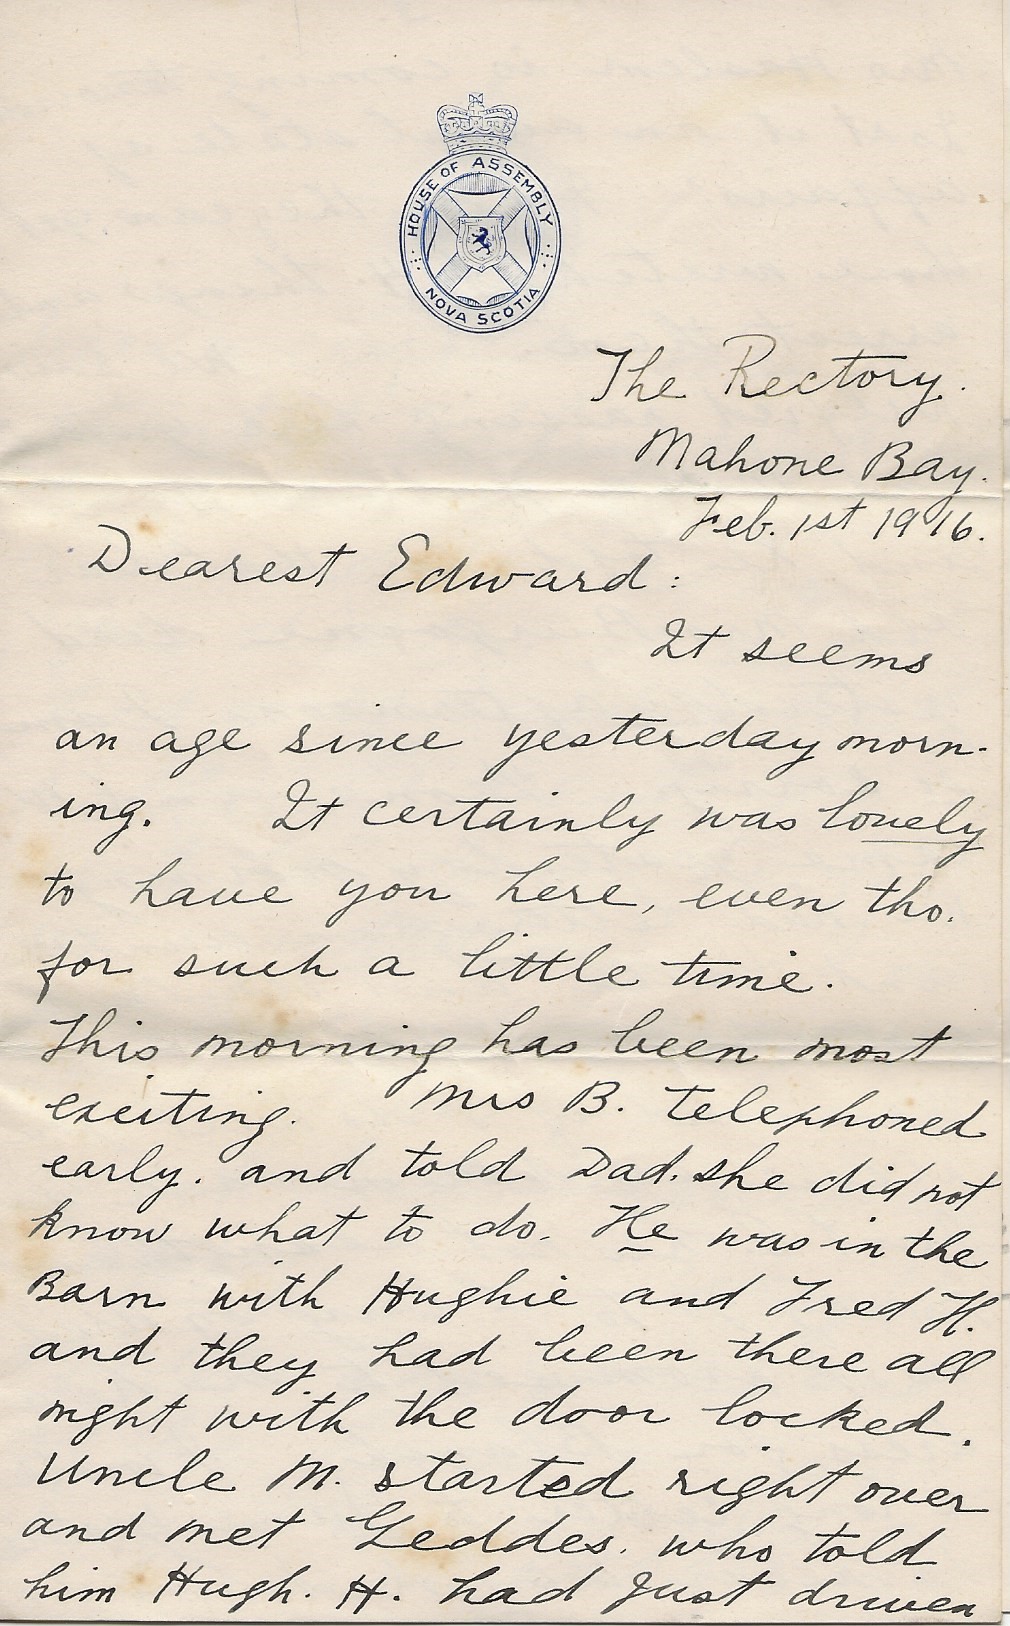 HOUSE OF ASSEMBLY
NOVA SCOTIA
The Rectory.
Mahone Bay.
Feb. 1st 1916.
Dearest Edward:
It seems
an age since yesterday morn-
ing. It certainly was lovely
to have you here, even tho.
for such a little time.
This morning has been most
exciting. Mrs B. telephoned
early. and told Dad. she did not
know what to do. He was in the
Barn with Hughie and Fred H.
and they had been there all
night with the door locked.
Uncle M. started right over
and met Geddes. who told
him Hugh. H. had just driven